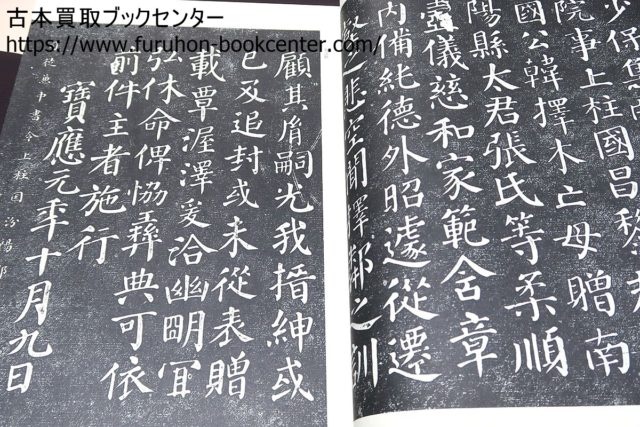 古本買取ブックセンター
https://www.furuhon-bookcenter.com/
少保
院事上柱國昌黎
國公韓擇木亡母贈南
陽縣太君張氏等柔順
壼儀慈和家範含章
内備純德外昭遽從遷
之悲空聞擇鄰之訓
顧其胤嗣光我搢紳或
已及追封或未從表贈
載覃渥澤爰洽幽明冝
弘休命俾恊彝典可依
前件主者施行
寶應元年十月九日
兼中書令上柱国汾陽郡